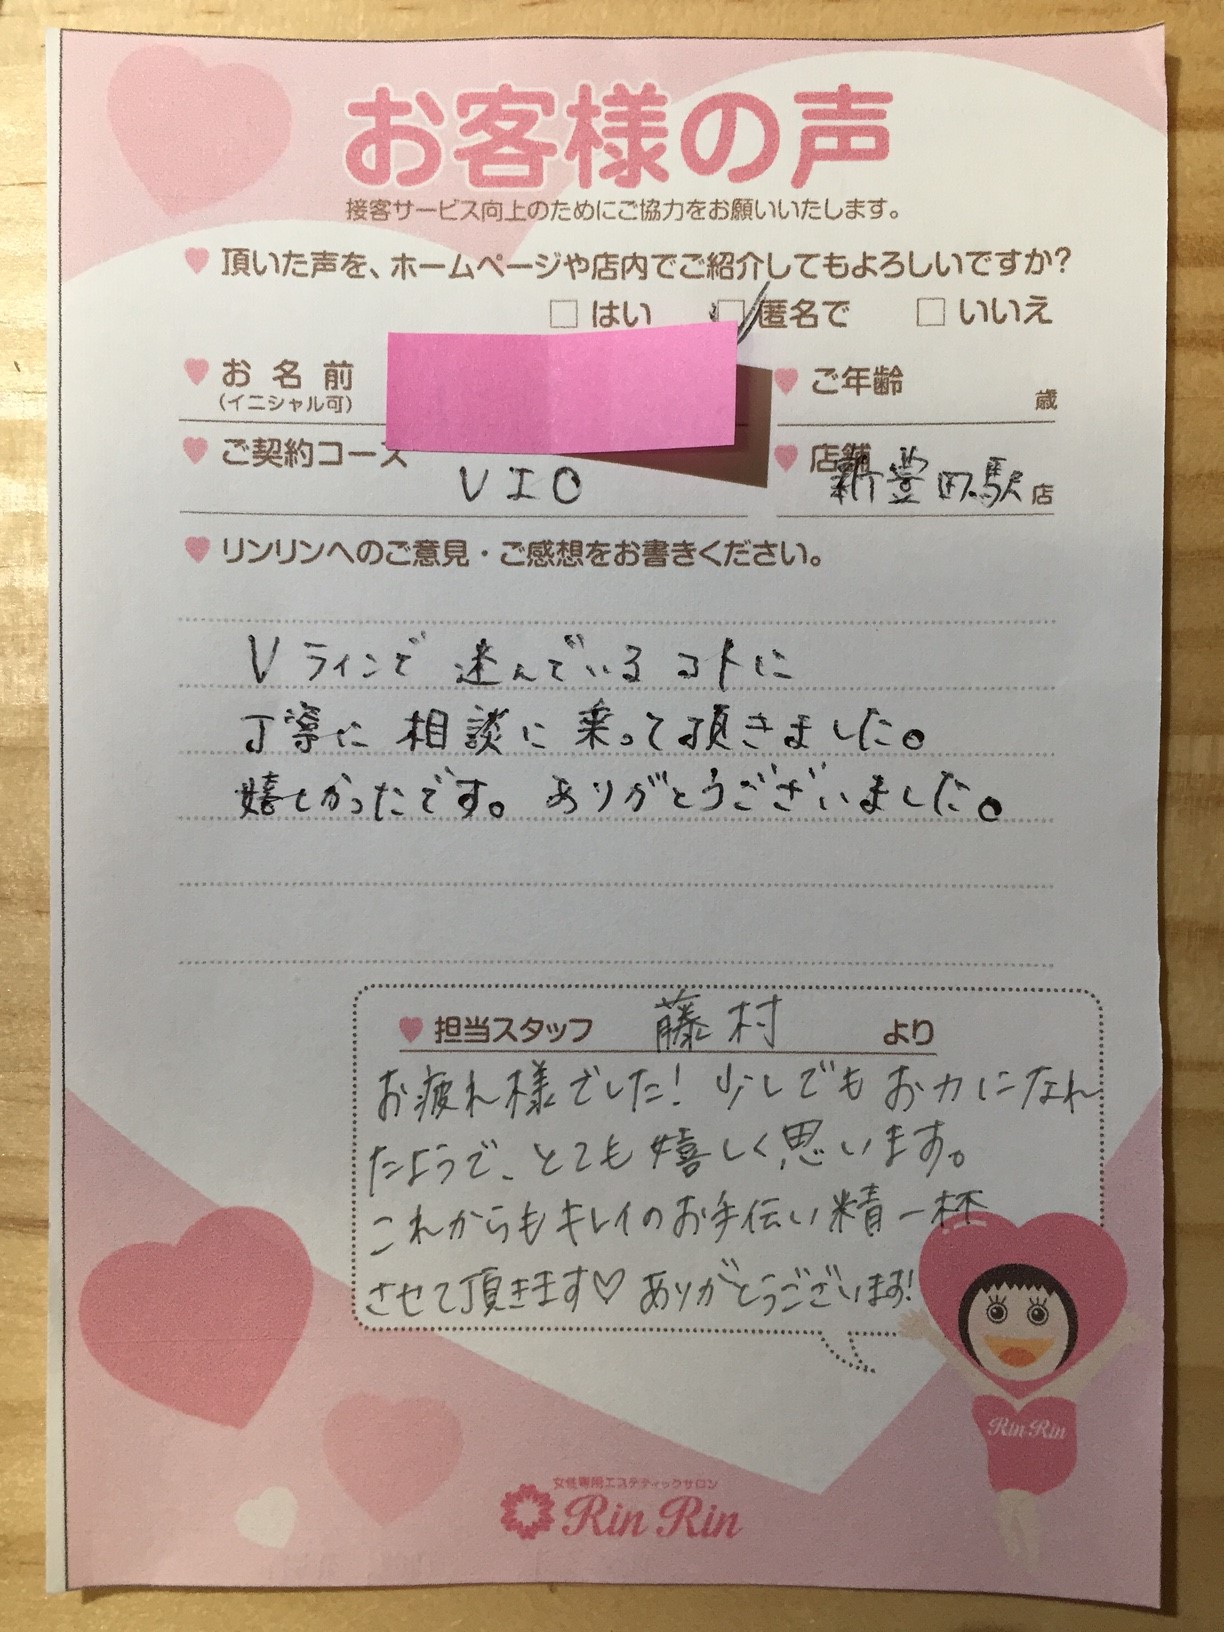 お客様の声
接客サービス向上のためにご協力をお願いいたします。
頂いた声を、ホームページや店内でご紹介してもよろしいですか?
□ はい □ 匿名で □ いいえ
お名前
(イニシャル可)
ご年齢 歳
ご契約コース VIO
店舗 新豊田駅 店
リンリンへのご意見・ご感想をお書きください。
Vラインで迷んでいるコトに
丁寧に相談に乗って頂きました。
嬉しかったです。ありがとうございました。
担当スタッフ 藤村 より
お疲れ様でした! 少しでもお力になれ
たようで、とても嬉しく思います。
これからもキレイのお手伝い精一杯
させて頂きます♡ ありがとうございます!
Rin Rin
女性専用エステティックサロン
Rin Rin